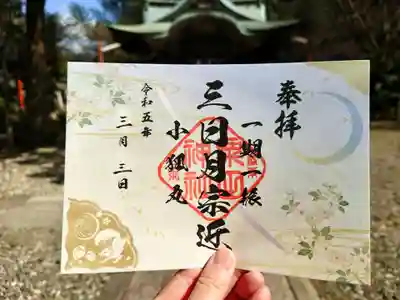 奉拝
一期一振
三日月宗近
小狐丸
令和五年
三月三日